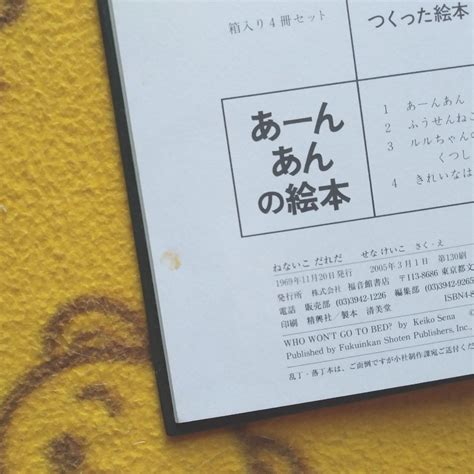 つくった絵本
箱入り4冊セット
あーん
あん
の絵本
1 あーんあん
2 ふうせんねこ
3 ルルちゃんの
くつし
4 きれいなは
ねないこ だれだ せな けいこ さく・え
1969年11月20日発行 2005年3月1日 第130刷
発行所 株式会社 福音館書店 〒113-8686 東京都文
電話 販売部 (03)3942-1226 編集部 (03)3942-9265
印刷 精興社/製本 清美堂 ISBN4-8
WHO WON'T GO TO BED? by Keiko Sena
Published by Fukuinkan Shoten Publishers, Inc.,
乱丁・落丁本は、ご面倒ですが小社制作課宛ご送付くだ